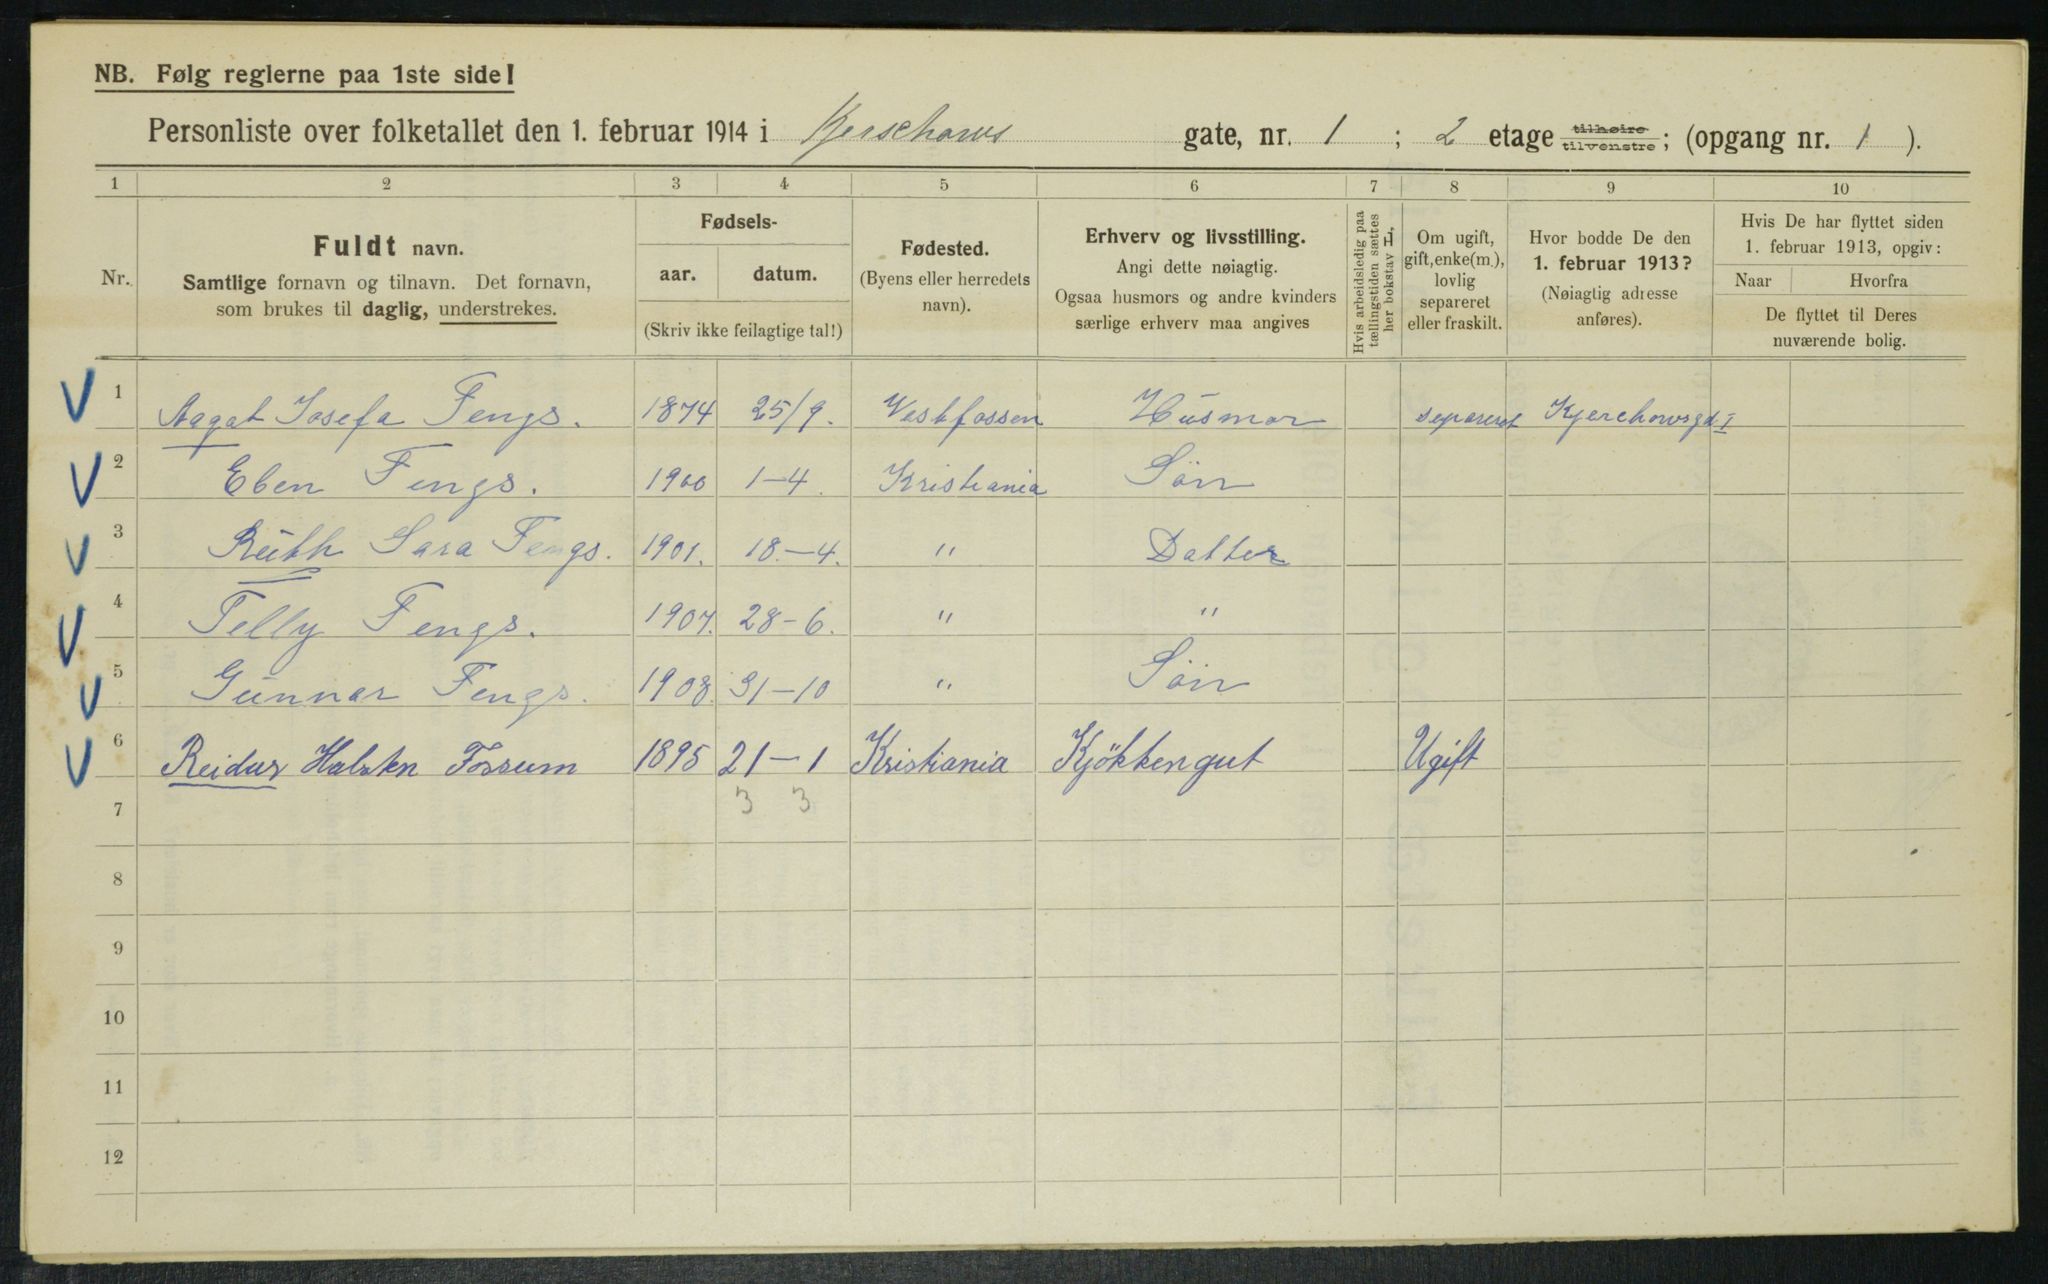 NB. Følg reglerne paa 1ste side!
Personliste over folketallet den 1. februar 1914 i Kjerschows gate, nr. 1 ; 2 etage tilhøire tilvenstre; (opgang nr. 1 ).
1 2 3 4 5 6 7 8 9 10
Nr.
Fuldt navn.
Samtlige fornavn og tilnavn. Det fornavn,
som brukes til daglig, understrekes.
Fødsels-
aar. datum.
(Skriv ikke feilagtige tal!)
Fødested.
(Byens eller herredets
navn).
Erhverv og livsstilling.
Angi dette nøiagtig.
Ogsaa husmors og andre kvinders
særlige erhverv maa angives
Hvis arbeidsledig paa
tællingstiden sættes
her bokstav L,
Om ugift,
gift, enke(m.),
lovlig
separeret
eller fraskilt.
Hvor bodde De den
1. februar 1913?
(Nøiagtig adresse
anføres).
Hvis De har flyttet siden
1. februar 1913, opgiv:
Naar Hvorfra
De flyttet til Deres
nuværende bolig.
1 Aagat Josefa Fengs. 1874 25/9. Vestfossen Husmor separeret Kjerchowsgd I
2 Eben Fengs. 1900 1-4. Kristiania Sön
3 Ruth Sara Fengs. 1901. 18.-4. " Datter
4 Telly Fengs. 1907. 28-6. " "
5 Gunnar Fengs. 1908. 31-10 " Sön
6 Reidar Halsten Fossum 1895 21-1 Kristiania Kjökkengut Ugift
7 3 3
8
9
10
11
12